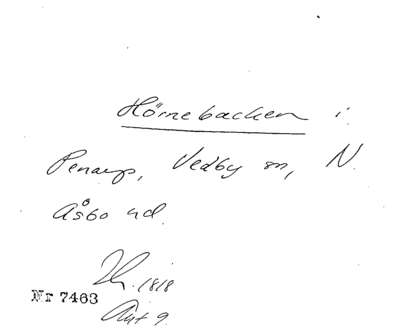 Hörnebacken i
Penarp, Vedby sn, N.
Åsbo hd.
1818
Nr 7463
Akt 9.